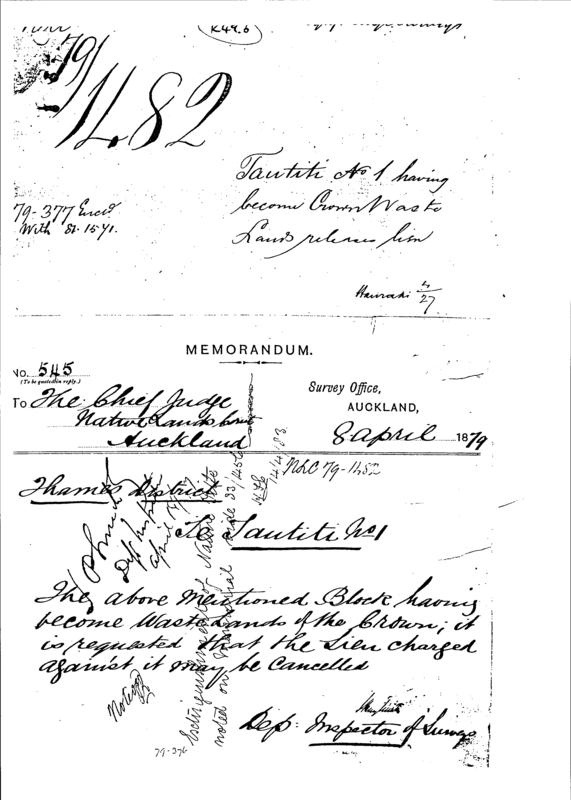 K49.6
79/1482
Tautiti No 1 having
become Crown Waste
Lands releases lien
79-377 Encd
With St. 1571.
Hauraki 4/27
MEMORANDUM.
No. 545
(To be quoted in reply.)
Survey Office,
AUCKLAND,
8 April 1879
To The Chief Judge
Native Lands Court
Auckland
NLC 79-1482
Thames District
Tautiti No 1
The above mentioned Block having
become Waste Lands of the Crown; it
is requested that the Lien charged
against it may be Cancelled
Dep: Inspector of Surveys
Extinguishment of Native title
noted on
14/4/83
Noted
79-376